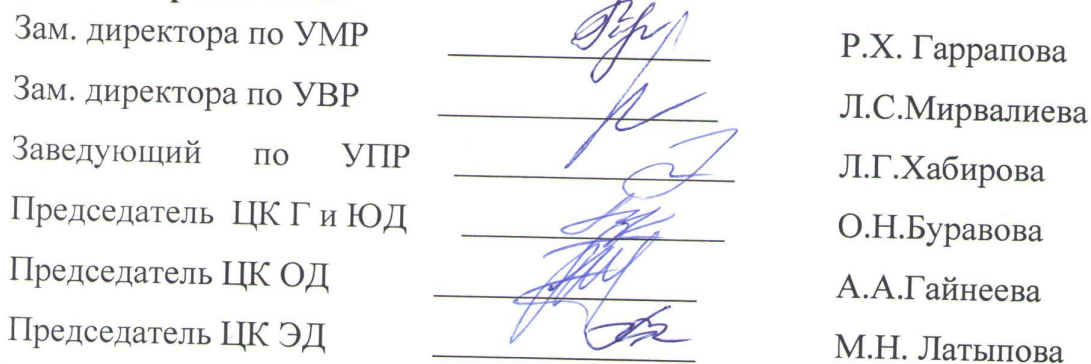 Зам. директора по УМР Р.Х. Гаррапова
Зам. директора по УВР Л.С.Мирвалиева
Заведующий по УПР Л.Г.Хабирова
Председатель ЦК Г и ЮД О.Н.Буравова
Председатель ЦК ОД А.А.Гайнеева
Председатель ЦК ЭД М.Н. Латыпова